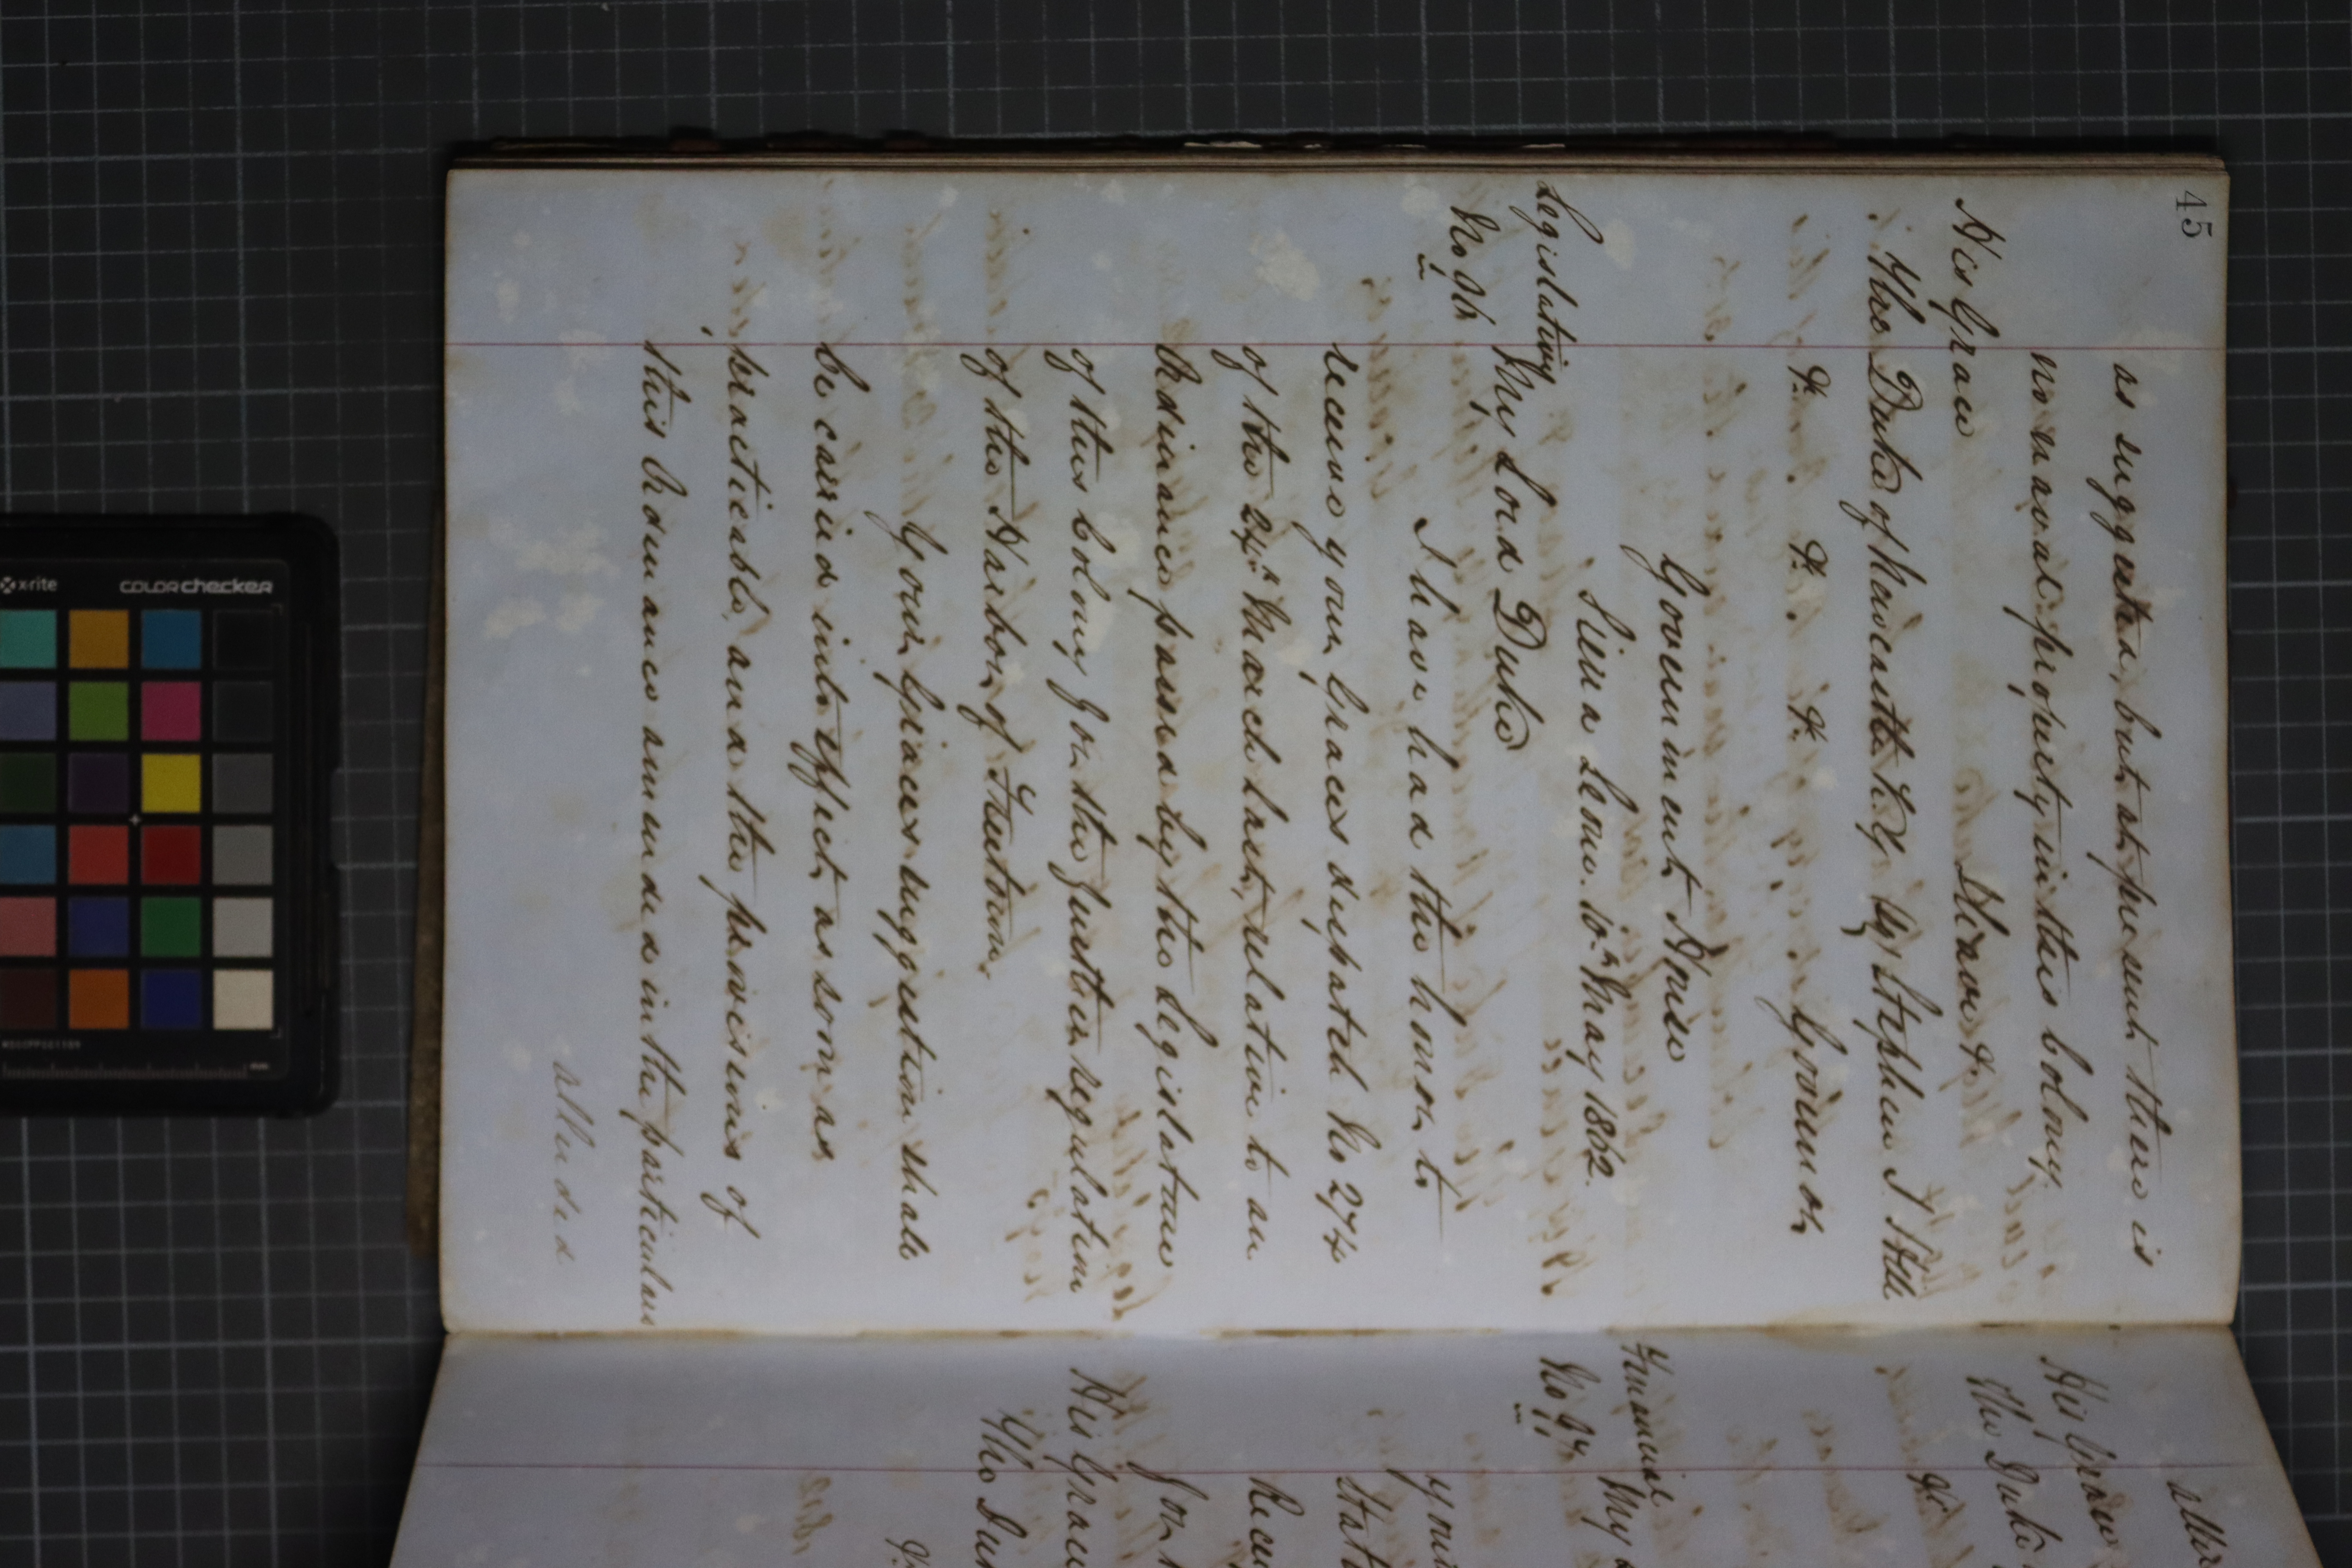 45
as suggested, but at present there is
no naval property in this Colony.
I have &c
His Grace
The Duke of Newcastle K.G. Sgd Stephen J Hill
&c. &c. &c. Governor
Government House
Sierra Leone. 15th May 1862.
Legislative
My Lord Duke
I have had the honor to
receive your Graces despatch No 274
of the 24th March last, relative to an
Ordinance passed by the Legislature
of this Colony for the further regulation
of the Harbor of Freetown.
Your Graces suggestion shall
be carried into effect as soon as
practicable, and the provisions of
this Ordinance amended in the particulars
alluded
His Grace
The Duke
&c
Financial
My
your
Stat
Rec
for
His Grace
The Du
x-rite
colorchecker